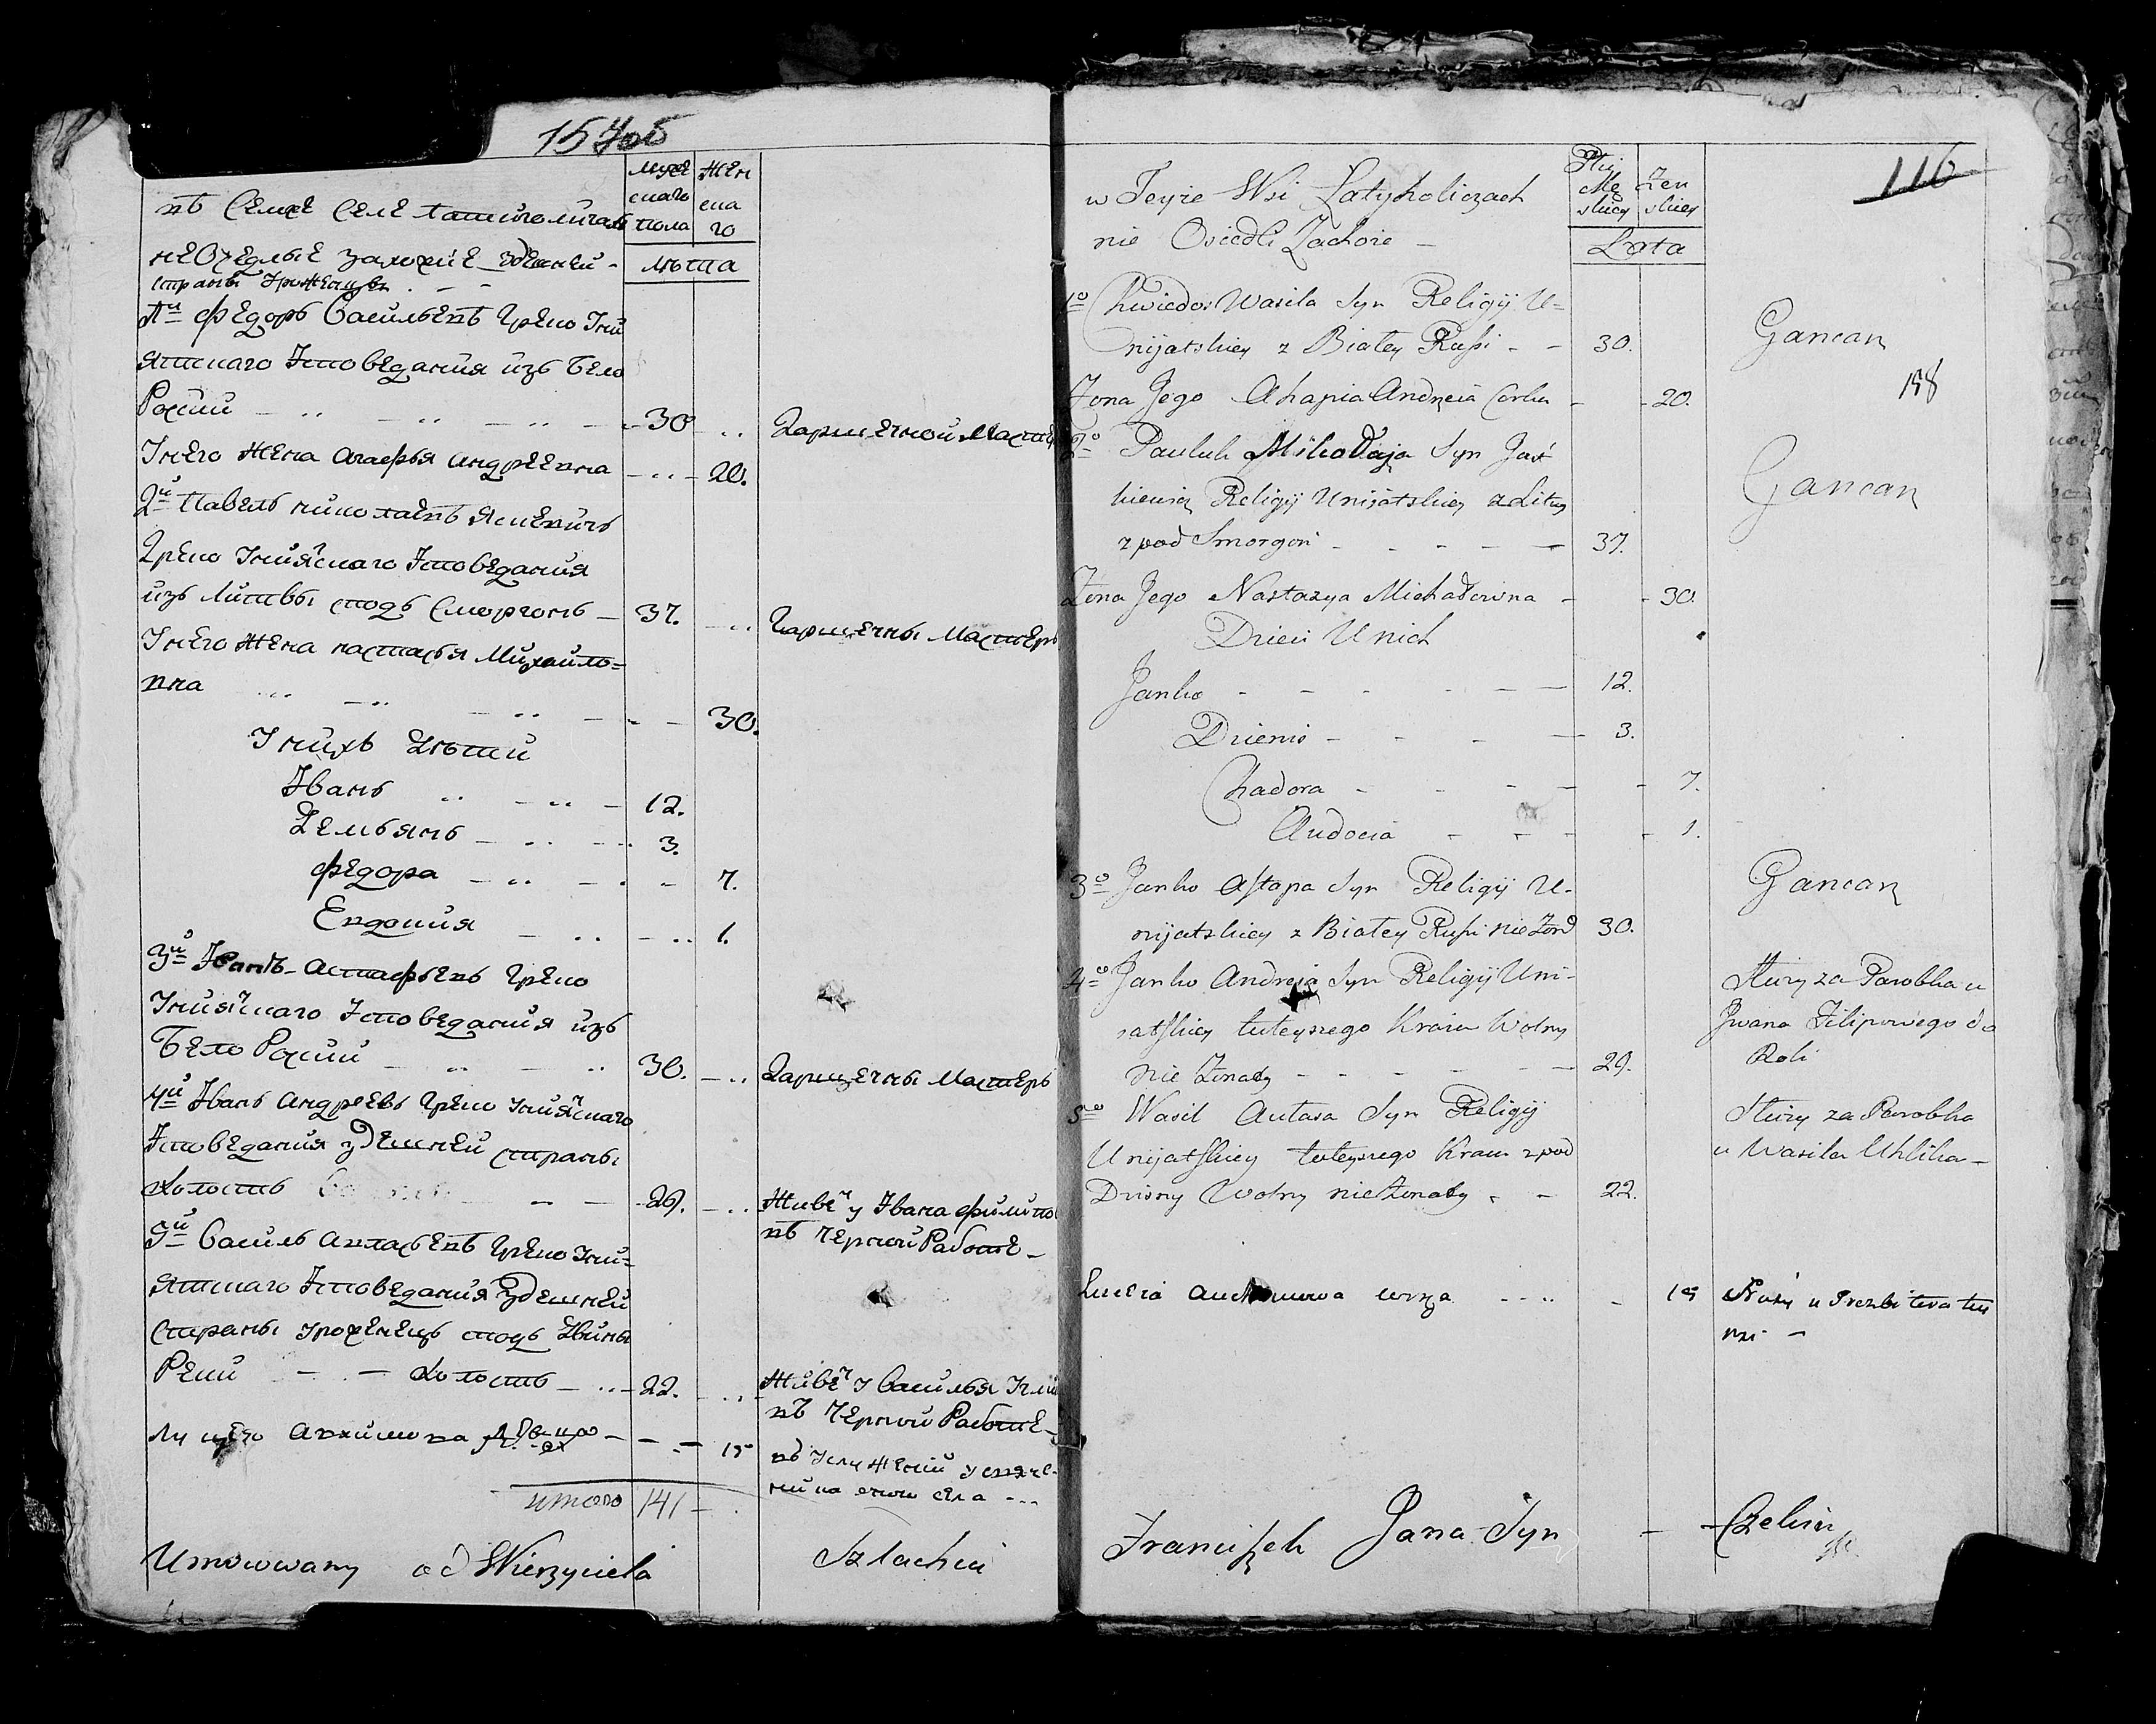 157об
муже
скаго
пола
жен
ска
го
лѣта
въ Семже Селе Латиголичахъ
не Оседлые захожие здешней
страны Уроженцы
1й Федоръ Васильевъ Греко Уни
ятскаго Исповедания изъ Бело
Росии 30 Гаршечной Мастеръ
У него жена Агафья Андреевна 20.
2й Павелъ Николаевъ Яскевичъ
Греко Униятскаго Исповедания
изъ Литвы подъ Сморгонь 37. Гаршечны Мастеръ
У него жена Настасья Михайло=
вна 30.
У нихъ дѣти
Иванъ 12.
Демьянъ 3.
Федора 7.
Евдокия 1.
3й Иванъ Астафьевъ Греко
Униятскаго Исповедания изъ
Бело Росии 30. Гаршечны Мастеръ
4й Иванъ Андреевъ Греко Униятскаго
Исповедания здешней страны
Холостъ 29. Живетъ у Ивана Филипо
въ Черной Работе
5й Василь Авласьевъ Греко Уни=
ятскаго Исповедания Здешней
страны уроженецъ подъ Двины
Реки Холостъ 22. Живетъ у Василья
въ Черной Работе
Авхимовна 15 въ услужении у свяще-
ника оного села
итого 141
Umówwany od Wierzyciela Szlachcic
116
w Teyże Wsi Łatyholiczach
nie Osiedli Zachoże
Płci
Mę
skiey
Żeń
skiey
Lata
1o Chwiedos Wasila Syn Religij U=
nijatskiey z Białey Rusi 30. Gancarz
158
Żona Jego Ahapia Andreia Corka 20.
2o Pauluk Mikołaja Syn Jaś
kiewicz Religij Unijatskiey z Litwy
z pod Smorgoń 37. Gancarz
Żona Jego Nastazya Michałowna 30.
Dzieci U nich
Janko 12.
Dziemis 3.
Chadora 7.
Audocia 1.
3o Janko Astapa Syn Religij U-
nijatskiey z Białey Rusi nie Żon 30. Gancarz
4o Janko Andreja Syn Religij Uni-
jatskiey tuteyszego Kraiu Wolny
nie Żonaty 29.
Służy za Parobka u
Jwana Filipowego do
Roli
5o Wasil Aułasa Syn Religij
Unijatskiey tuteyszego Kraiu z pod
Dzisny Wolny nie Żonaty 22.
Służy za Parobka
u Wasila Uhlika
Łucia 15 Służy u Prezbitera tey
wsi
Franciszek Jana Syn